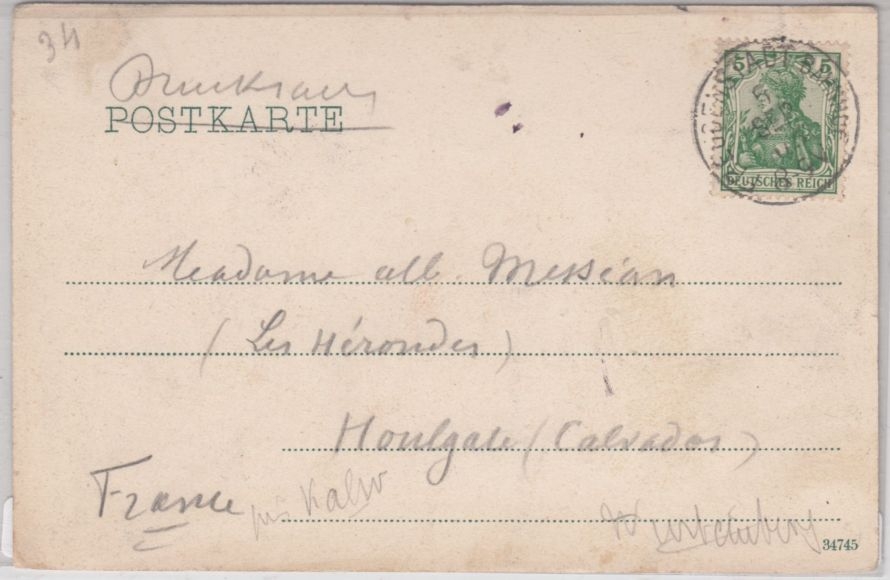 34
Drucksache
POSTKARTE
5 5
DEUTSCHES REICH
Madame alb. Messian
(Les Hérondes)
Houlgate (Calvados)
France
près Kalw
Wurtemberg
34745